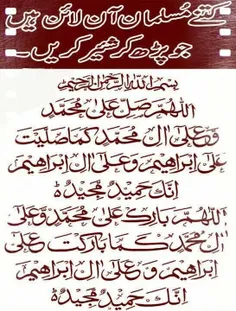 کتنے مُسلمان آن لائن ہیں
جو پڑھ کر شیئر کریں۔
بسم اللہ الرحمن الرحیم
اَللّٰهُمَّ صَلِّ عَلیٰ مُحَمَّدٍ
وَّعَلیٰ اٰلِ مُحَمَّدٍ کَمَا صَلَّیْتَ
عَلیٰ اِبْرَاهِیْمَ وَعَلیٰ اٰلِ اِبْرَاهِیْمَ
اِنَّکَ حَمِیْدٌ مَّجِیْدٌ ہ
اَللّٰهُمَّ بَارِکْ عَلیٰ مُحَمَّدٍ وَّعَلیٰ
اٰلِ مُحَمَّدٍ کَمَا بَارَکْتَ عَلیٰ
اِبْرَاهِیْمَ وَعَلیٰ اٰلِ اِبْرَاهِیْمَ
اِنَّکَ حَمِیْدٌ مَّجِیْدٌ ہ